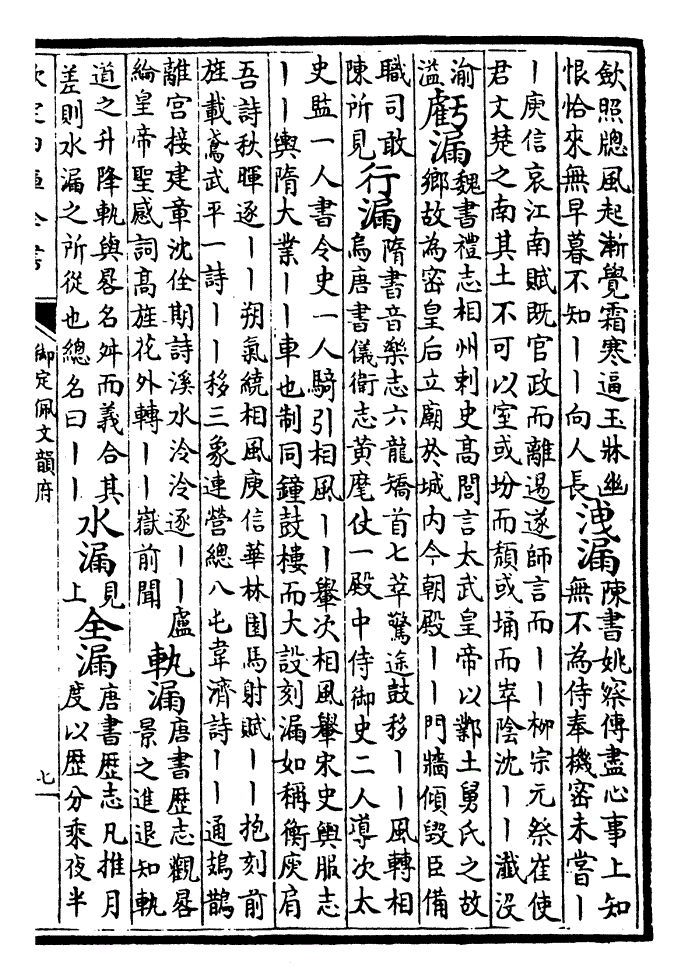 歛照牕風起漸覺霜寒逼玉牀幽
恨恰來無早暮不知丨丨向人長
洩漏
陳書姚察傳盡心事上知
無不為侍奉機密未嘗丨
丨庾信哀江南賦既官政而離逷遂師言而丨丨柳宗元祭崔使
君文楚之南其土不可以室或坋而頽或埇而崒陰沈丨丨瀸沒
渝
溢
虧漏
魏書禮志相州刺史高閭言太武皇帝以鄴土舅氏之故
鄉故為密皇后立廟於城内今朝殿丨丨門牆傾毀臣備
職司敢
陳所見
行漏
隋書音樂志六龍矯首七萃驚途鼓移丨丨風轉相
烏唐書儀衛志黄麾仗一殿中侍御史二人導次太
史監一人書令史一人騎引相風丨丨轝次相風轝宋史輿服志
丨丨輿隋大業丨丨車也制同鐘鼓樓而大設刻漏如稱衡庾肩
吾詩秋暉逐丨丨朔氣繞相風庾信華林園馬射賦丨丨抱刻前
旌載鳶武平一詩丨丨移三象連營總八屯韋濟詩丨丨通鳷鵲
離宫接建章沈佺期詩溪水泠泠逐丨丨盧
綸皇帝聖感詞高旌花外轉丨丨嶽前聞
軌漏
唐書歴志觀晷
景之進退知軌
道之升降軌與晷名舛而義合其
差則水漏之所從也總名曰丨丨
水漏
見
上
全漏
唐書歴志凡推月
度以歴分乘夜半
欽定四庫全書
御定佩文韻府
七